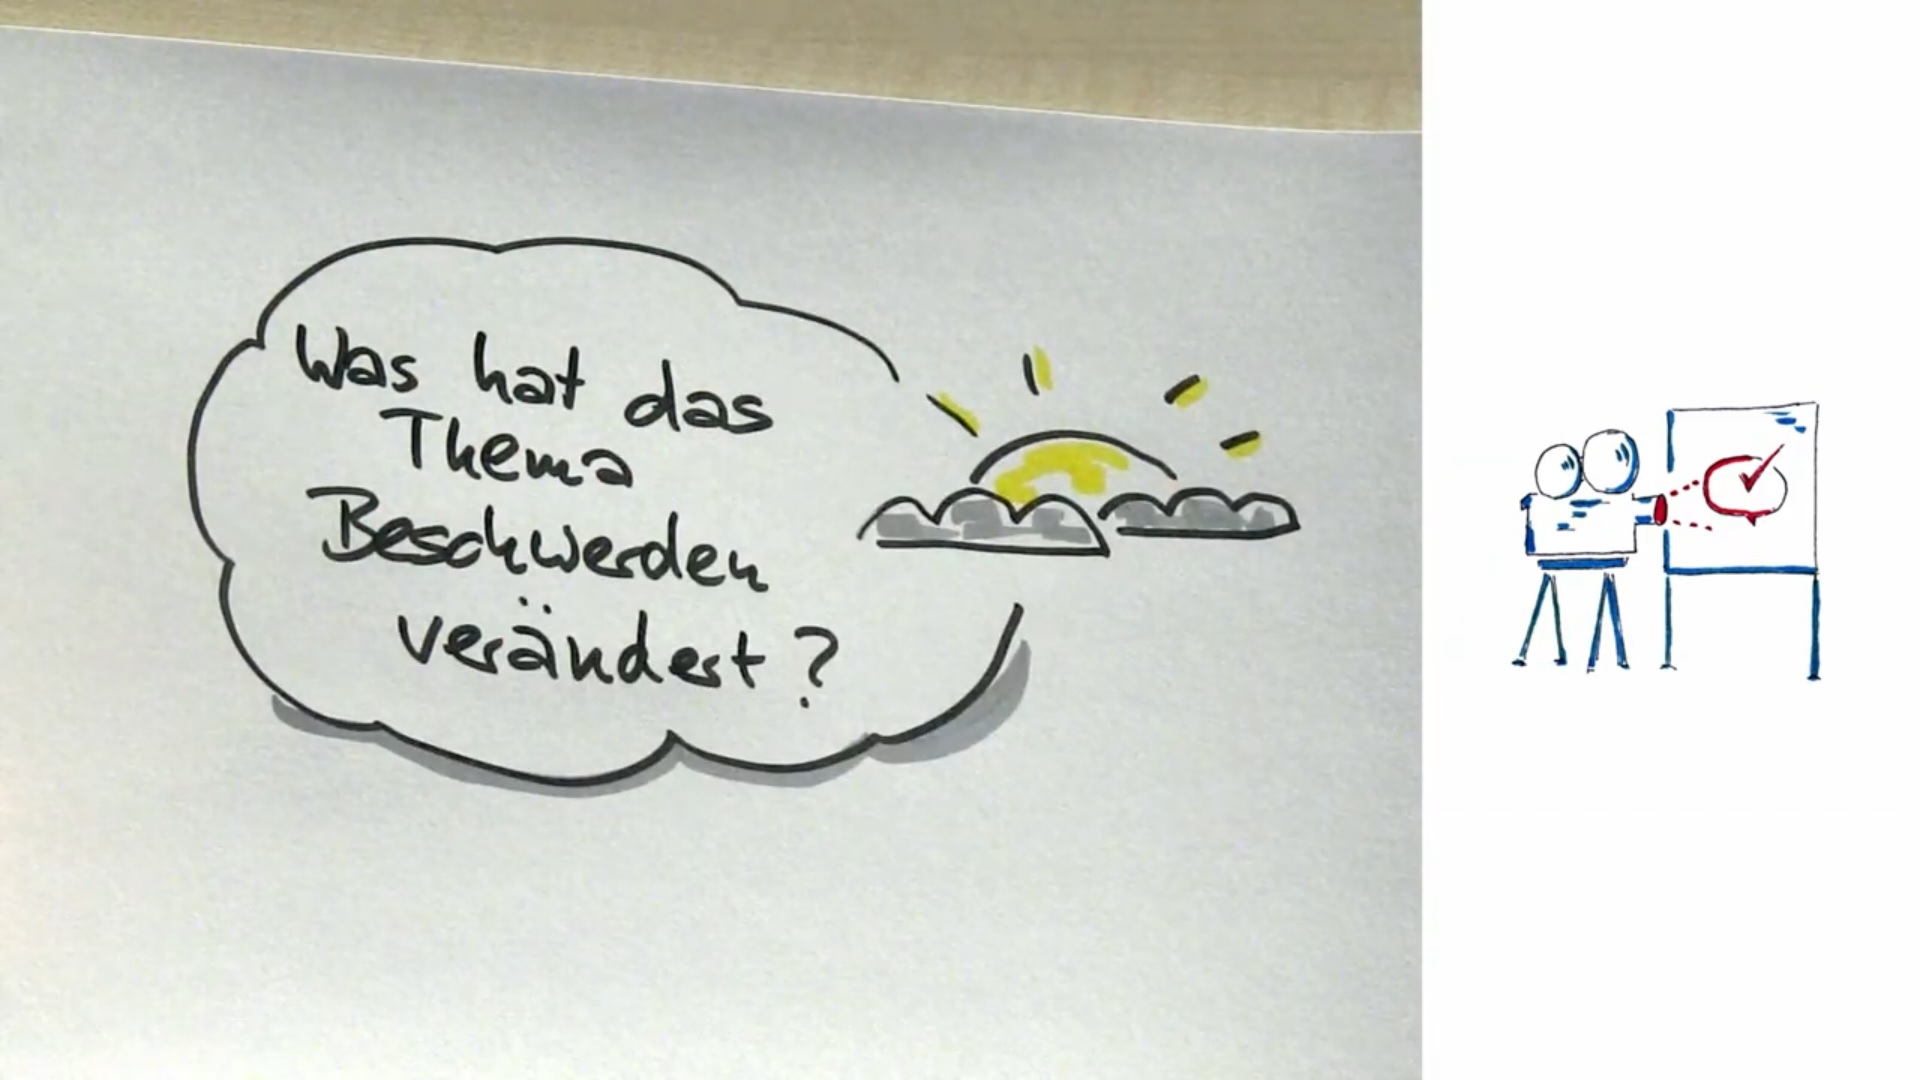 Was hat das
Thema
Beschwerden
verändert?